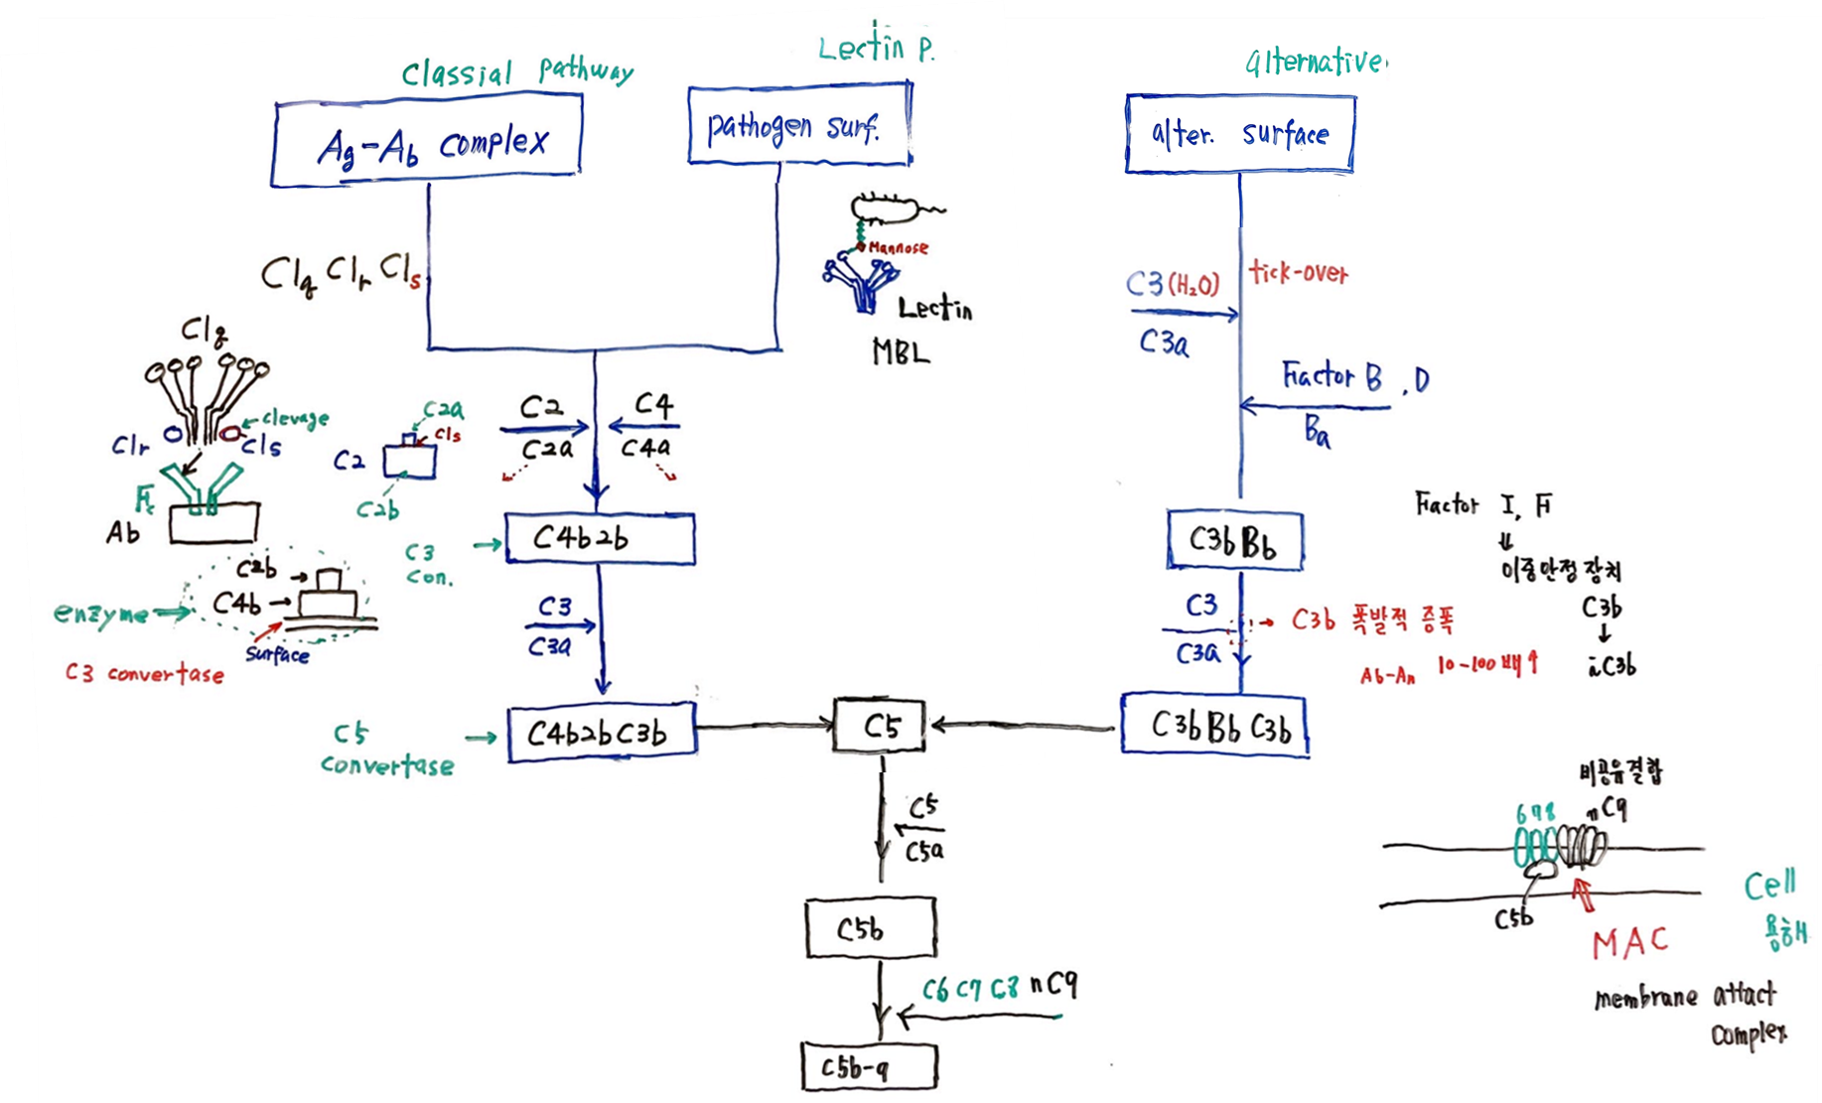 Classial pathway
Lectin p.
alternative.
Ag-Ab complex
pathogen surf.
alter. surface
Mannose
Lectin
MBL
C1q C1r C1s
C3(H2O)
tick-over
C3a
Factor B, D
Ba
C1q
clevage
C1r
C1s
Fc
Ab
C2a
C1s
C2
C2b
C2
C2a
C4
C4a
C3 con.
C4b2b
C3bBb
Factor I, H
이중안정장치
C3b
iC3b
C2b
C4b
enzyme
surface
C3 convertase
C3
C3a
C3
C3a
C3b 폭발적 증폭
Ab-An 10~100배↑
C5 convertase
C4b2bC3b
C5
C3bBbC3b
C5
C5a
C5b
C6 C7 C8 nC9
C5b-9
비공유결합
6 7 8
nC9
C5b
MAC
Cell
용해
membrane attact
complex